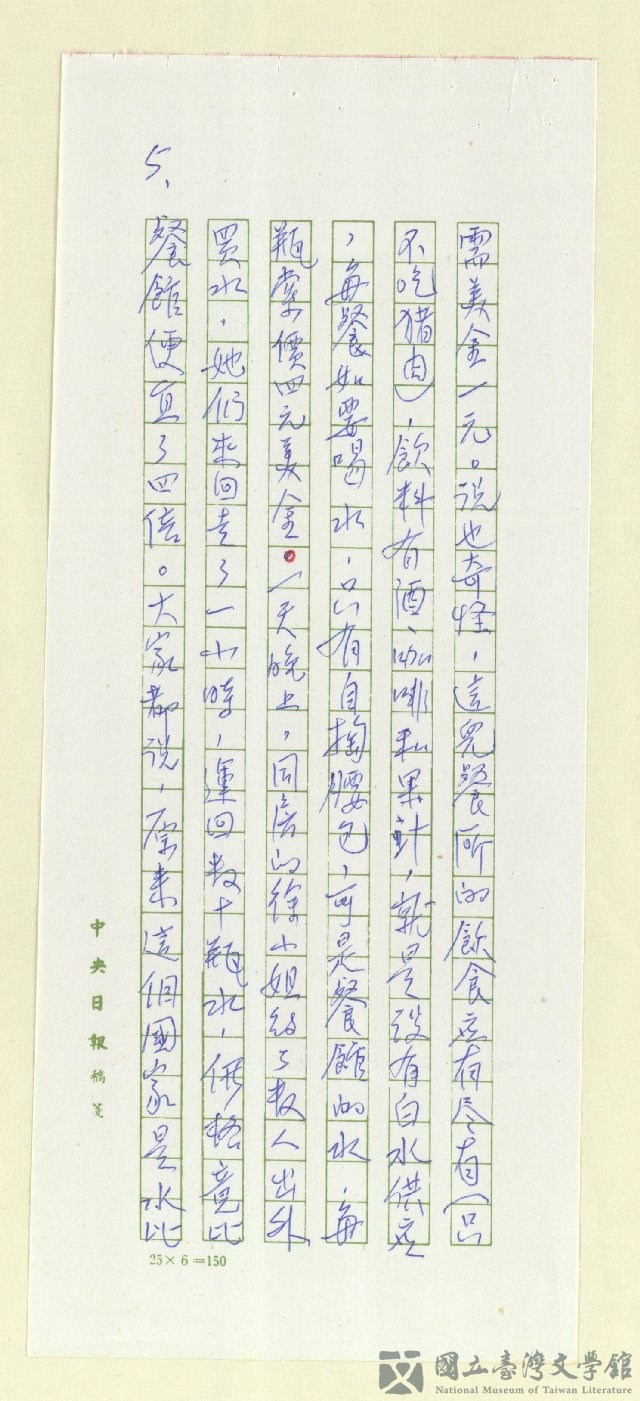 需美金一元。說也奇怪，這兒餐所的飲食应有尽有（只
不吃猪肉），飲料有酒、咖啡和果汁，就是没有白水供应
，每餐如要喝水，只有自掏腰包，可是餐館的水，每
瓶索價四元美金。一天晚上，同房的徐小姐約了数人出外
買水，她們来回走了一小時，運回数十瓶水，價格竟比
餐館便宜了四倍。大家都说，原来這個國家是水比
5、
中央日報稿箋
25×6＝150
國立臺灣文學館
National Museum of Taiwan Literature